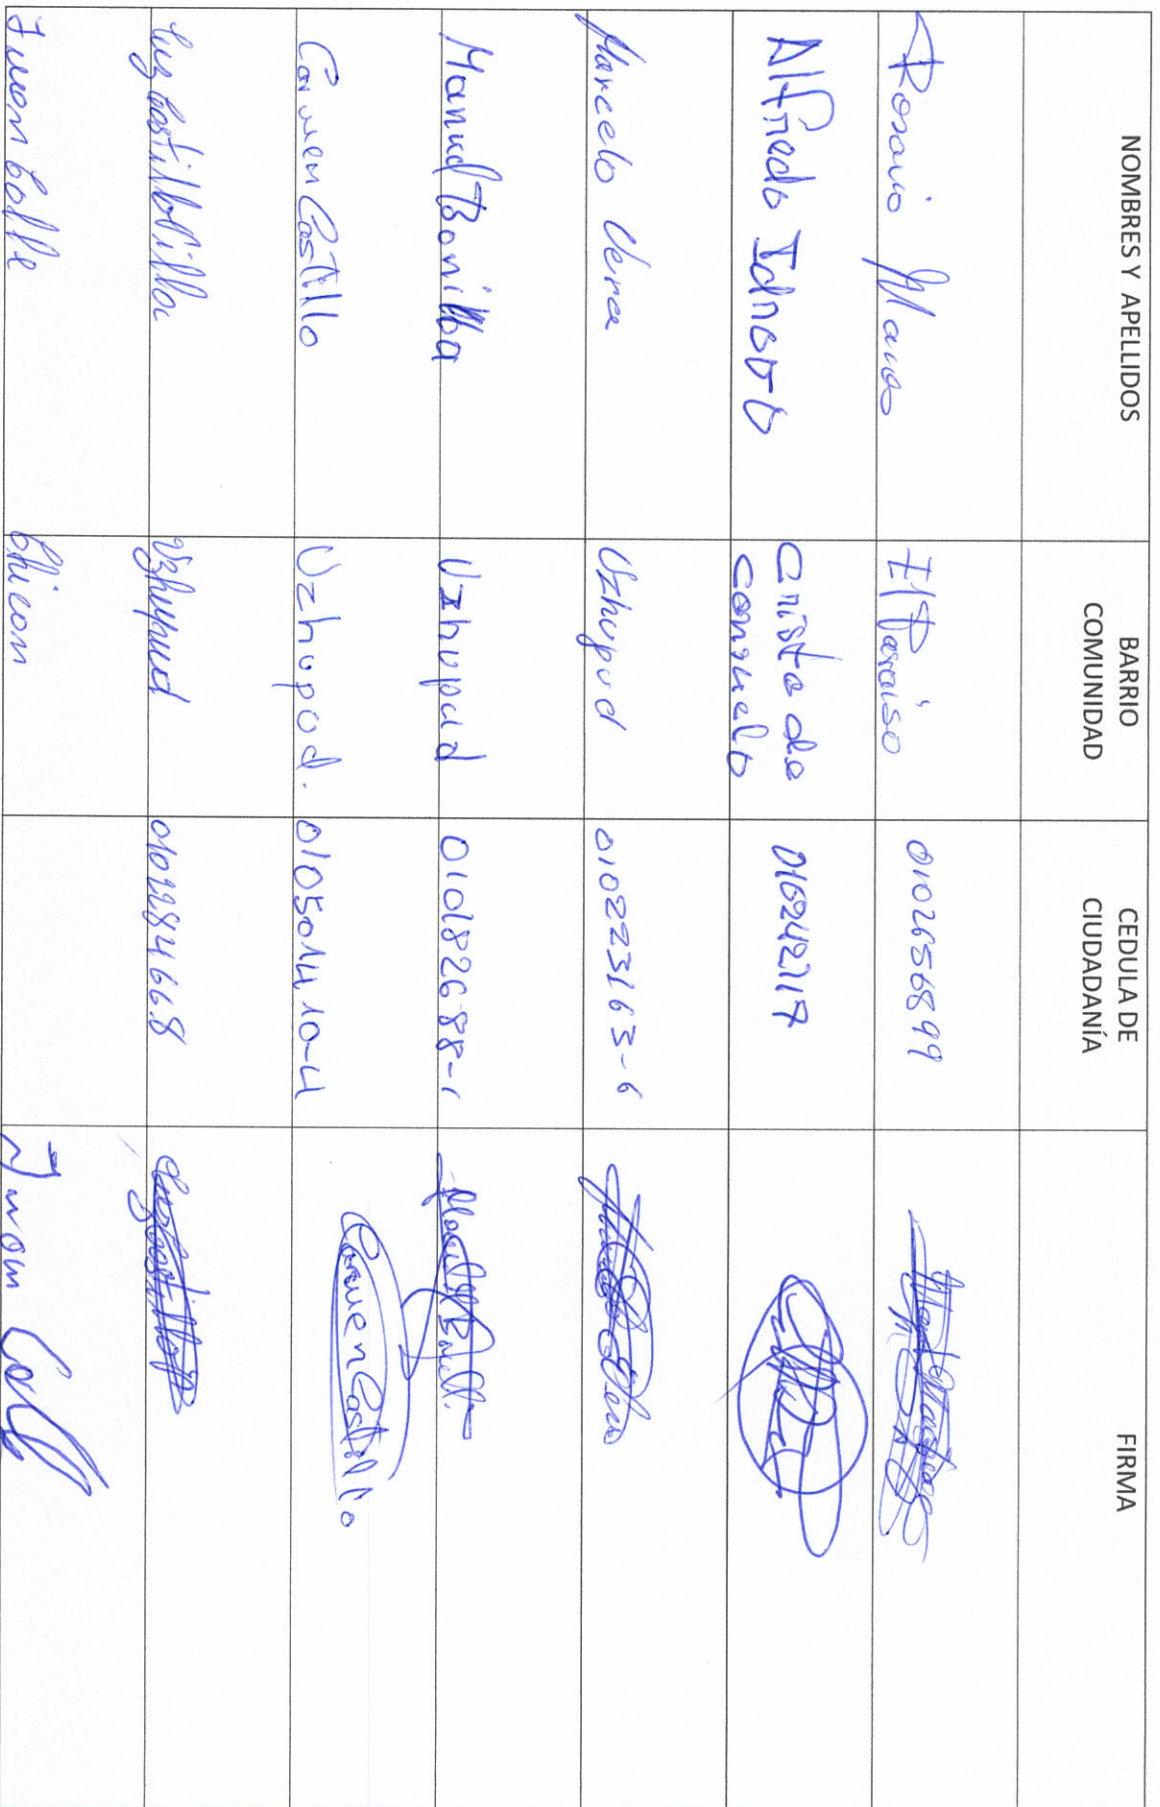 NOMBRES Y APELLIDOS
BARRIO COMUNIDAD
CEDULA DE CIUDADANÍA
FIRMA
Rosario
El Paraiso
0102656899
Alfredo Idrovo
Cristo de Consuelo
Marcelo Vera
Uzhupud
010223163-6
Manuel Bonilla
Uzhupud
010182688-1
Carmen Castillo
Uzhupod.
010501410-4
Carmen Castillo
Luz Castillo
Uzhupud
0102284668
Juan Calle
Chican
Juan Call